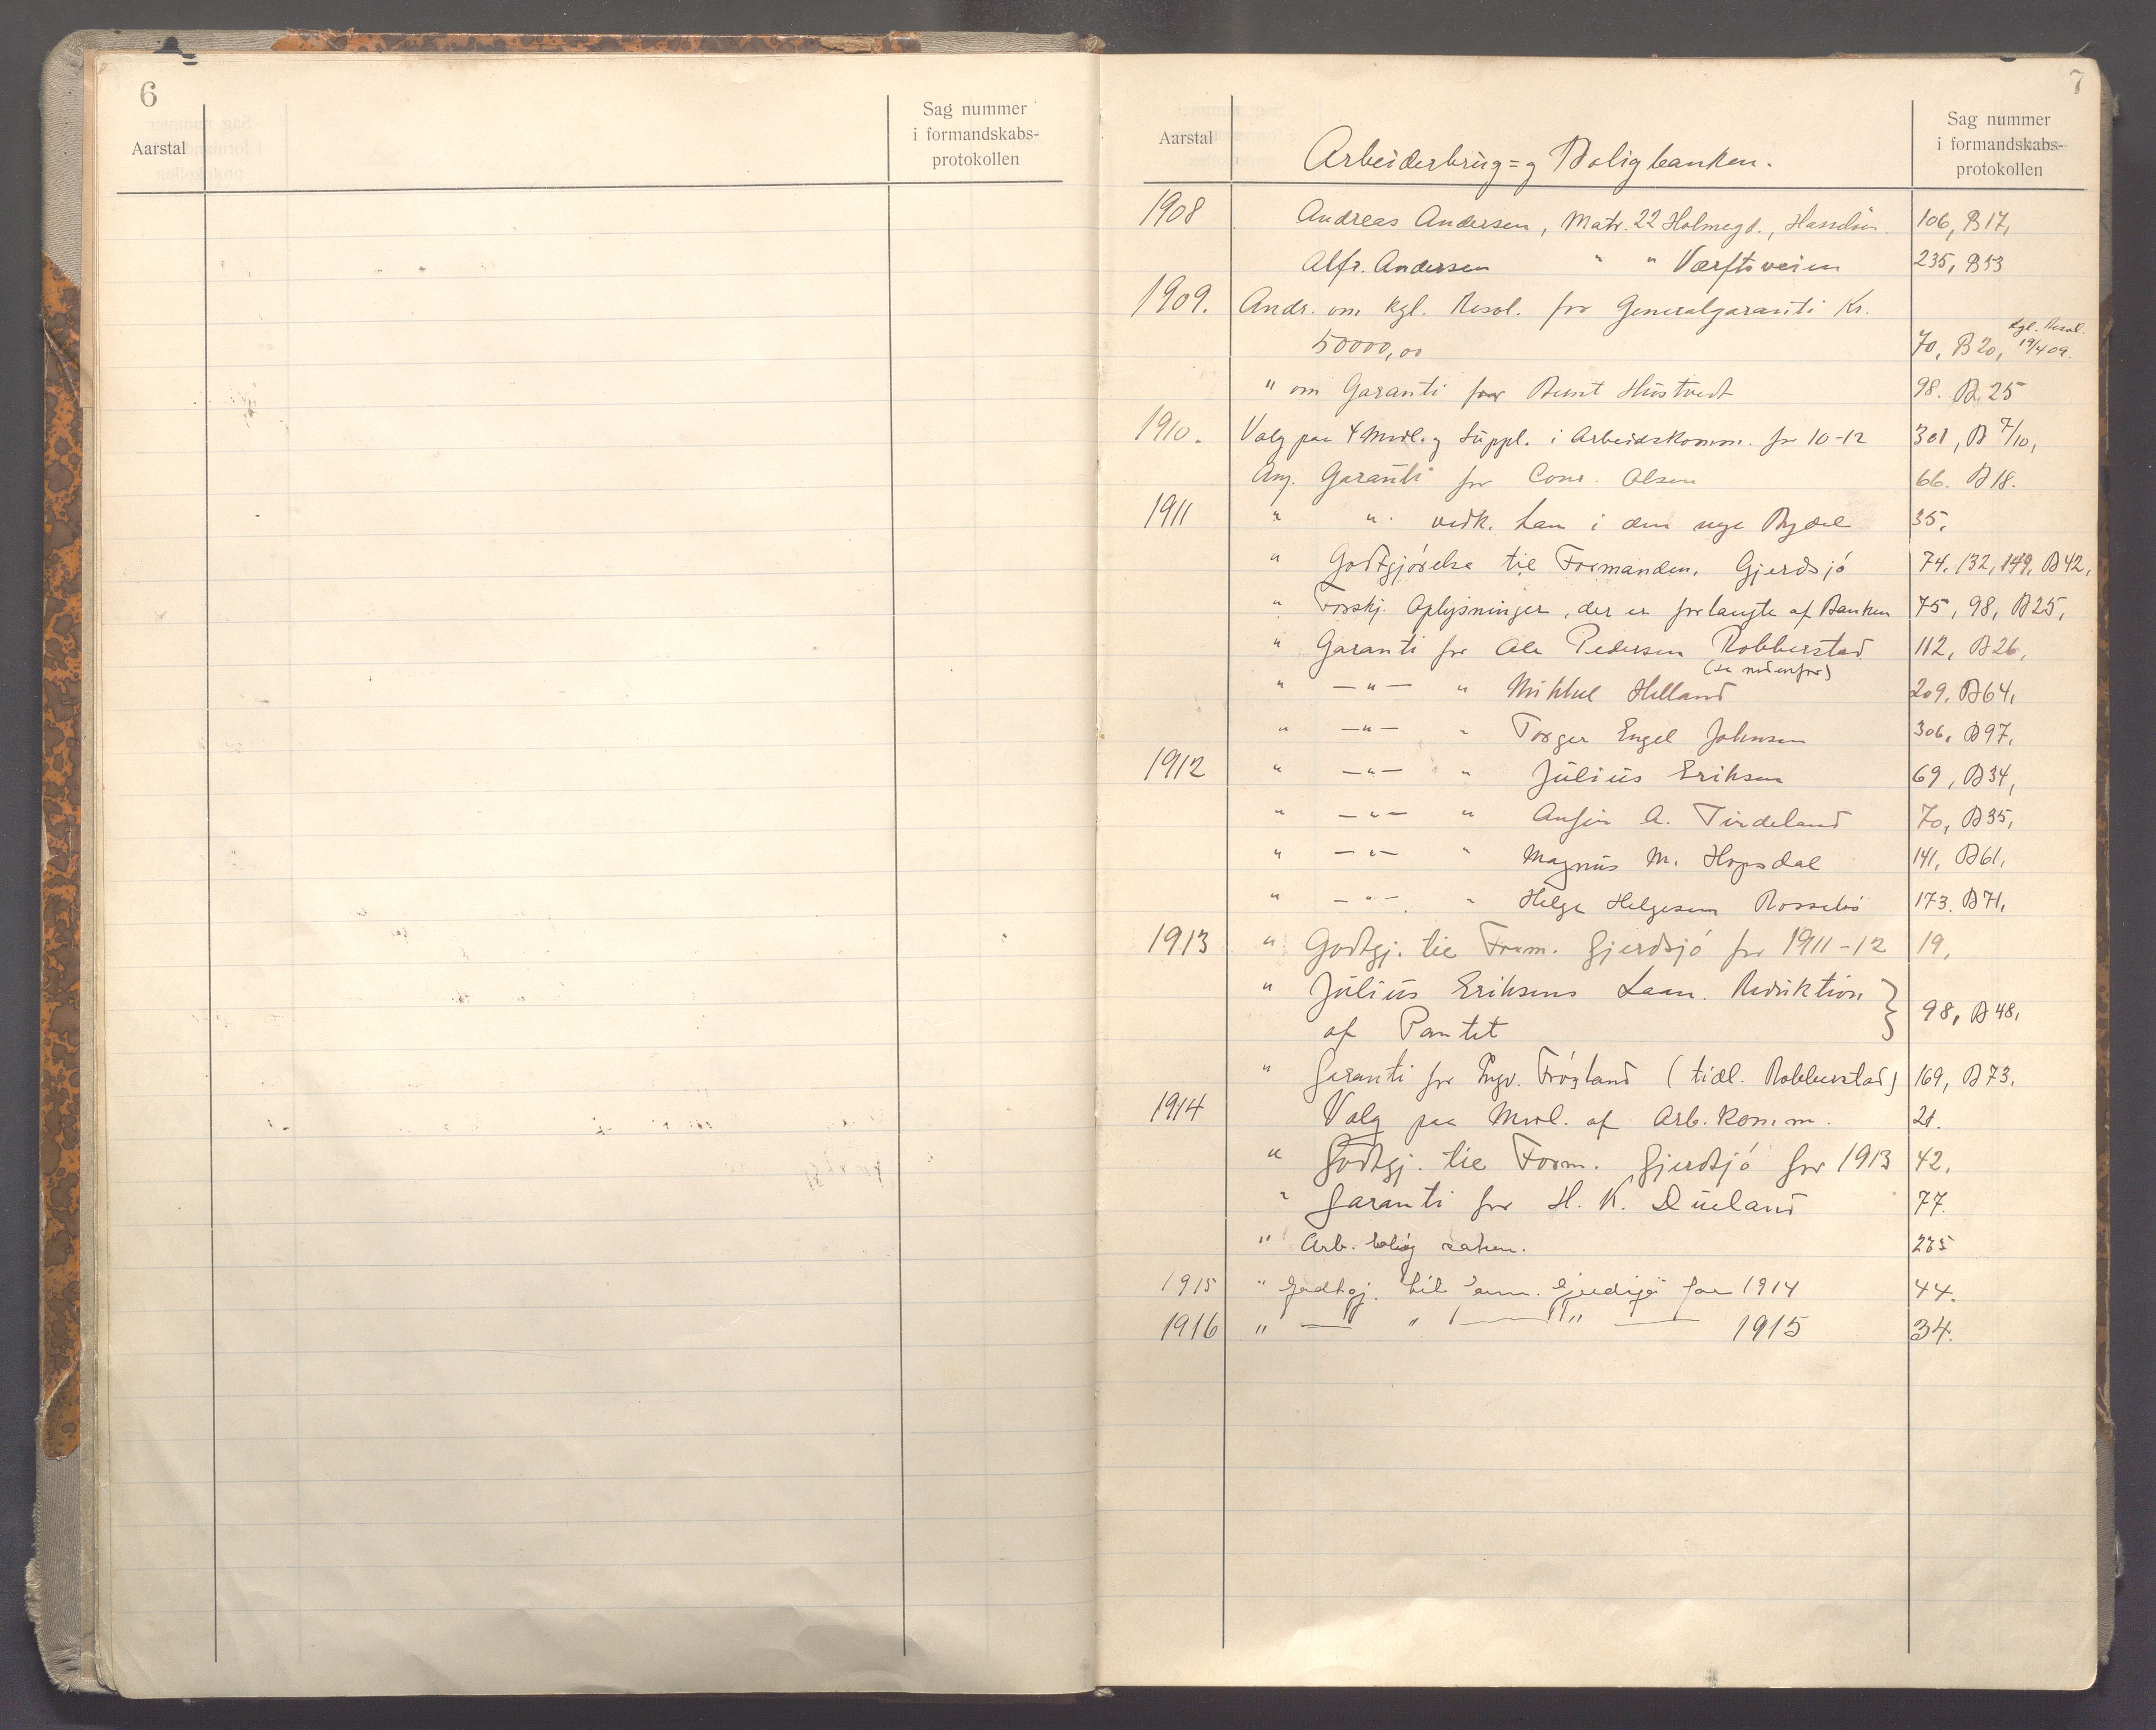 6
Aarstal
Sag nummer
i formandskabs-
protokollen
7
Aarstal
Arbeiderbrug= og Boligbanken.
Sag nummer
i formandskabs-
protokollen
1908 Andreas Andersen, Matr. 22 Holmegd., 106, B17,
Alfr. Andersen " " Værftsveien 235, B53
1909. Andr. om kgl. Resol. for Generalgaranti Kr.
50000,00 70, B20, kgl. Resol. 19/4 09.
" om Garanti for Bunt Hustvedt 98. B. 25
1910. Valg paa 4 Medl. og Suppl. i Arbeidskomm. for 10-12 301, B 7/10,
Ang. Garanti for Conr. Olsen 66. B18.
1911 " " vedk. Laan i den nye Bydel 35,
" Godtgjörelse til Formanden, Gjerdsjó 74, 132, 149, B42,
" Forskj. Oplysninger, der er forlangte af Banken 75, 98, B25,
" Garanti for Ole Pedersen Robberstad 112, B26,
(se nedenfor)
" —"— " Mikkel Helland 209, B64,
" —"— " Torger Engel Johnsen 306, B97,
1912 " —"— " Julius Eriksen 69, B34,
" —"— " Anfin A. Tindeland 70, B35,
" —"— " Magnus M. Hopsdal 141, B61,
" —"— " Helge Helgesen Rossebö 173. B71,
1913 " Godtgj. til Form. Gjerdsjó for 1911-12 19,
" Julius Eriksens Laan. Reduktion
af Pantet } 98, B48,
" Garanti for Ingv. Frógland (tidl. Robberstad) 169, B73,
1914 Valg paa Medl. af Arb. komm. 21.
" Godtgj. til Form. Gjerdsjó for 1913 42.
" Garanti for H. K. Dueland 77.
" Arb. bolig saken. 235
1915 " Godtgj. til Form. Gjerdsjö for 1914 44.
1916 " — " — " — 1915 34.